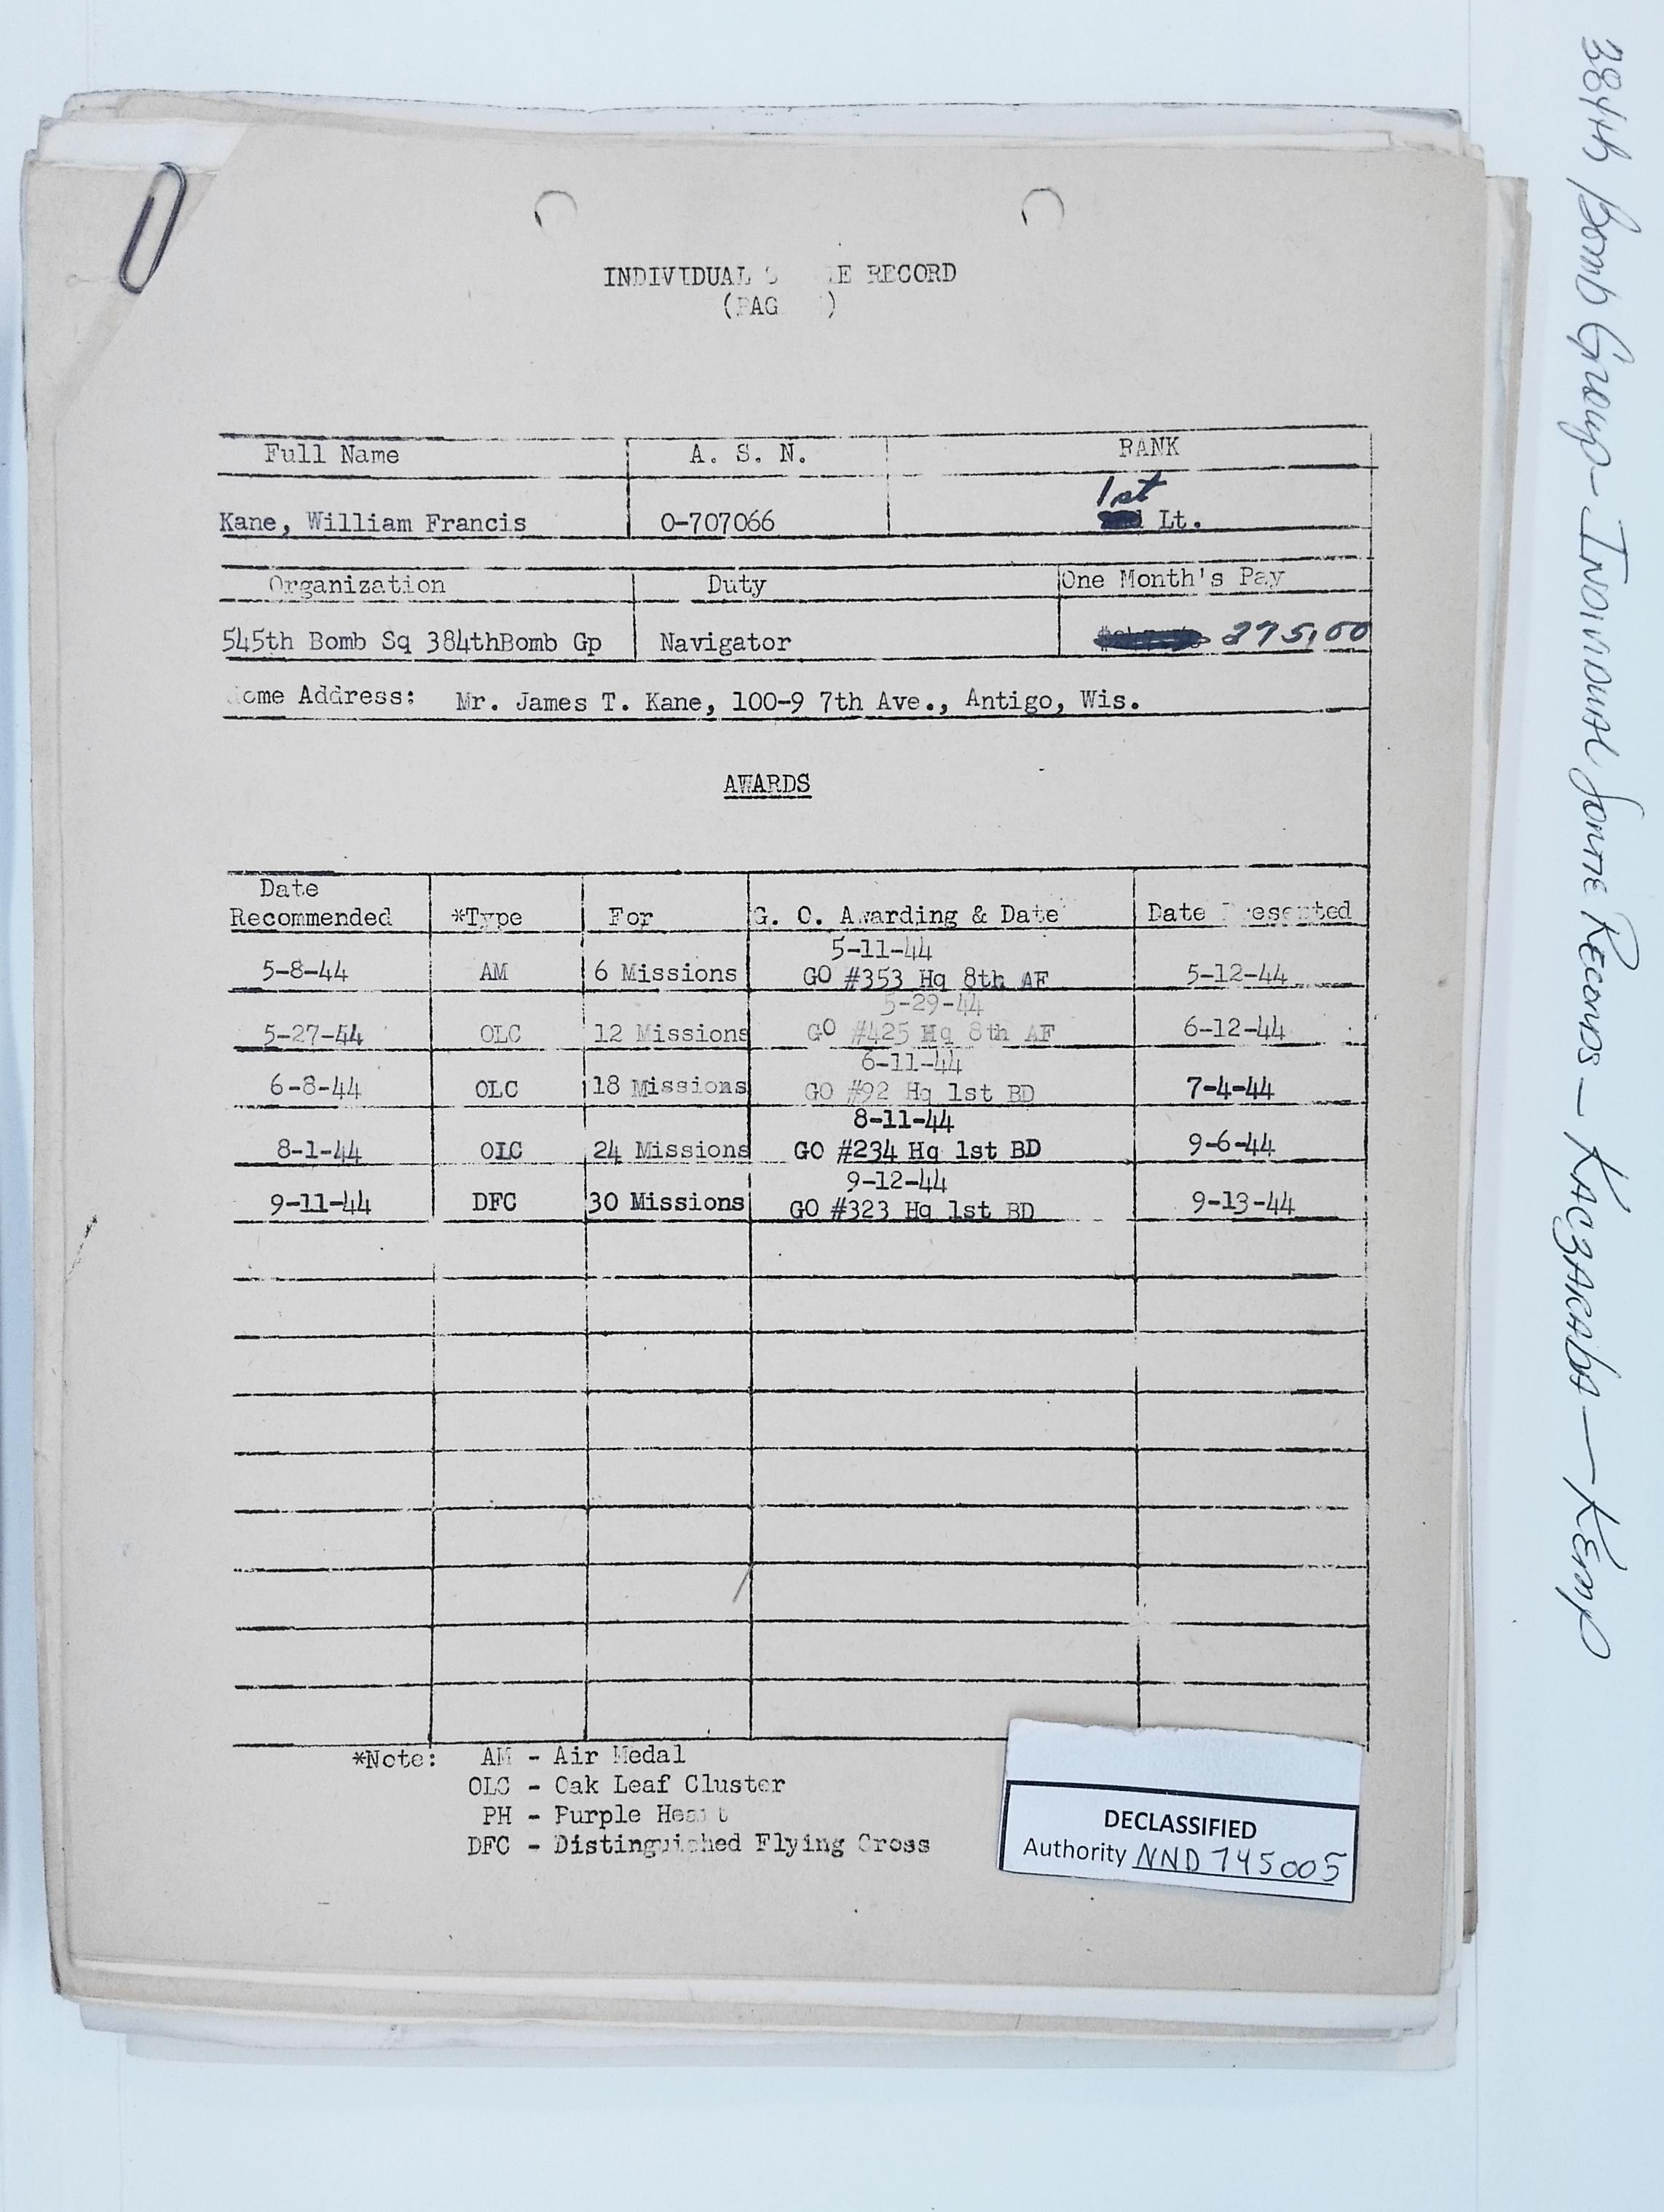 INDIVIDUAL RECORD
Full Name A. S. N. RANK
1st
Kane, William Francis O-707066 Lt.
Organization Duty One Month's Pay
545th Bomb Sq 384thBomb Gp Navigator 275,00
Home Address: Mr. James T. Kane, 100-9 7th Ave., Antigo, Wis.
AWARDS
Date
Recommended *Type For G. O. Awarding & Date Date Presented
5-11-44
5-8-44 AM 6 Missions GO #353 Hq 8th AF 5-12-44
5-29-44
5-27-44 OLC 12 Missions GO #425 Hq 8th AF 6-12-44
6-11-44
6-8-44 OLC 18 Missions GO #92 Hq 1st BD 7-4-44
8-11-44
8-1-44 OLC 24 Missions GO #234 Hq 1st BD 9-6-44
9-12-44
9-11-44 DFC 30 Missions GO #323 Hq 1st BD 9-13-44
*Note: AM - Air Medal
OLC - Oak Leaf Cluster
PH - Purple Heart
DFC - Distinguished Flying Cross
DECLASSIFIED
Authority NND 745005
384th Bomb Group - Individual Sortie Records - Kaczaraba - Kemp